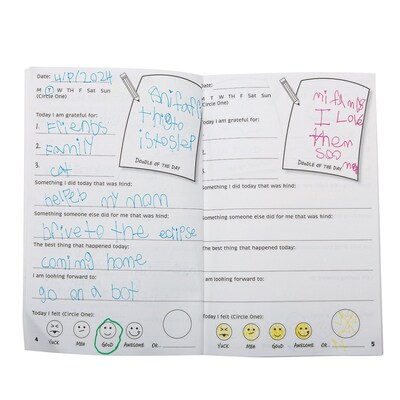 Date: 4/8/2024
M T W TH F Sat Sun
(Circle One)
DOODLE OF THE DAY
Today I am grateful for:
1. Frienbs
2. Family
3. cat
Something I did today that was kind:
helpeb my mom
Something someone else did for me that was kind:
brive to the eclipse
The best thing that happened today:
coming home
I am looking forward to:
go on a bot
Today I felt (Circle One):
YUCK MEH GOOD AWESOME OR
4
Date:
M T W TH F Sat Sun
(Circle One)
mi
I Love
them
soo
DOODLE OF THE DAY
Today I am grateful for:
1.
2.
3.
Something I did today that was kind:
Something someone else did for me that was kind:
The best thing that happened today:
I am looking forward to:
Today I felt (Circle One):
YUCK MEH GOOD AWESOME OR
5